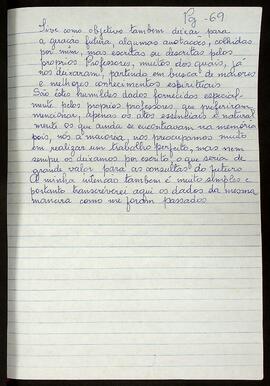 Pg -69
Tive como objetivo tambem deixar para
a gração futura, algumas anotações, colhidas
por mim, mas escritas ou descritas pelos
proprios Professores, muitos dos quais, já
nos deixaram, partindo em busca de maiores
e melhores conhecimentos espirituais
São estes humildes dados fornecidos especial-
mente pelos proprios professores, que preferiram
mencionar, apenas os atos essenciais e natural
mente os que ainda se encontravam na memória
pois, nós a maioria, nos preocupamos muito
em realizar um trabalho perfeito, mas nem
sempre os deixamos por escrito o que seria de
grande valor para as consultas do futuro
A minha intenção tambem é muito simples e
portanto transcreverei aqui os dados da mesma
maneira como me foram passados